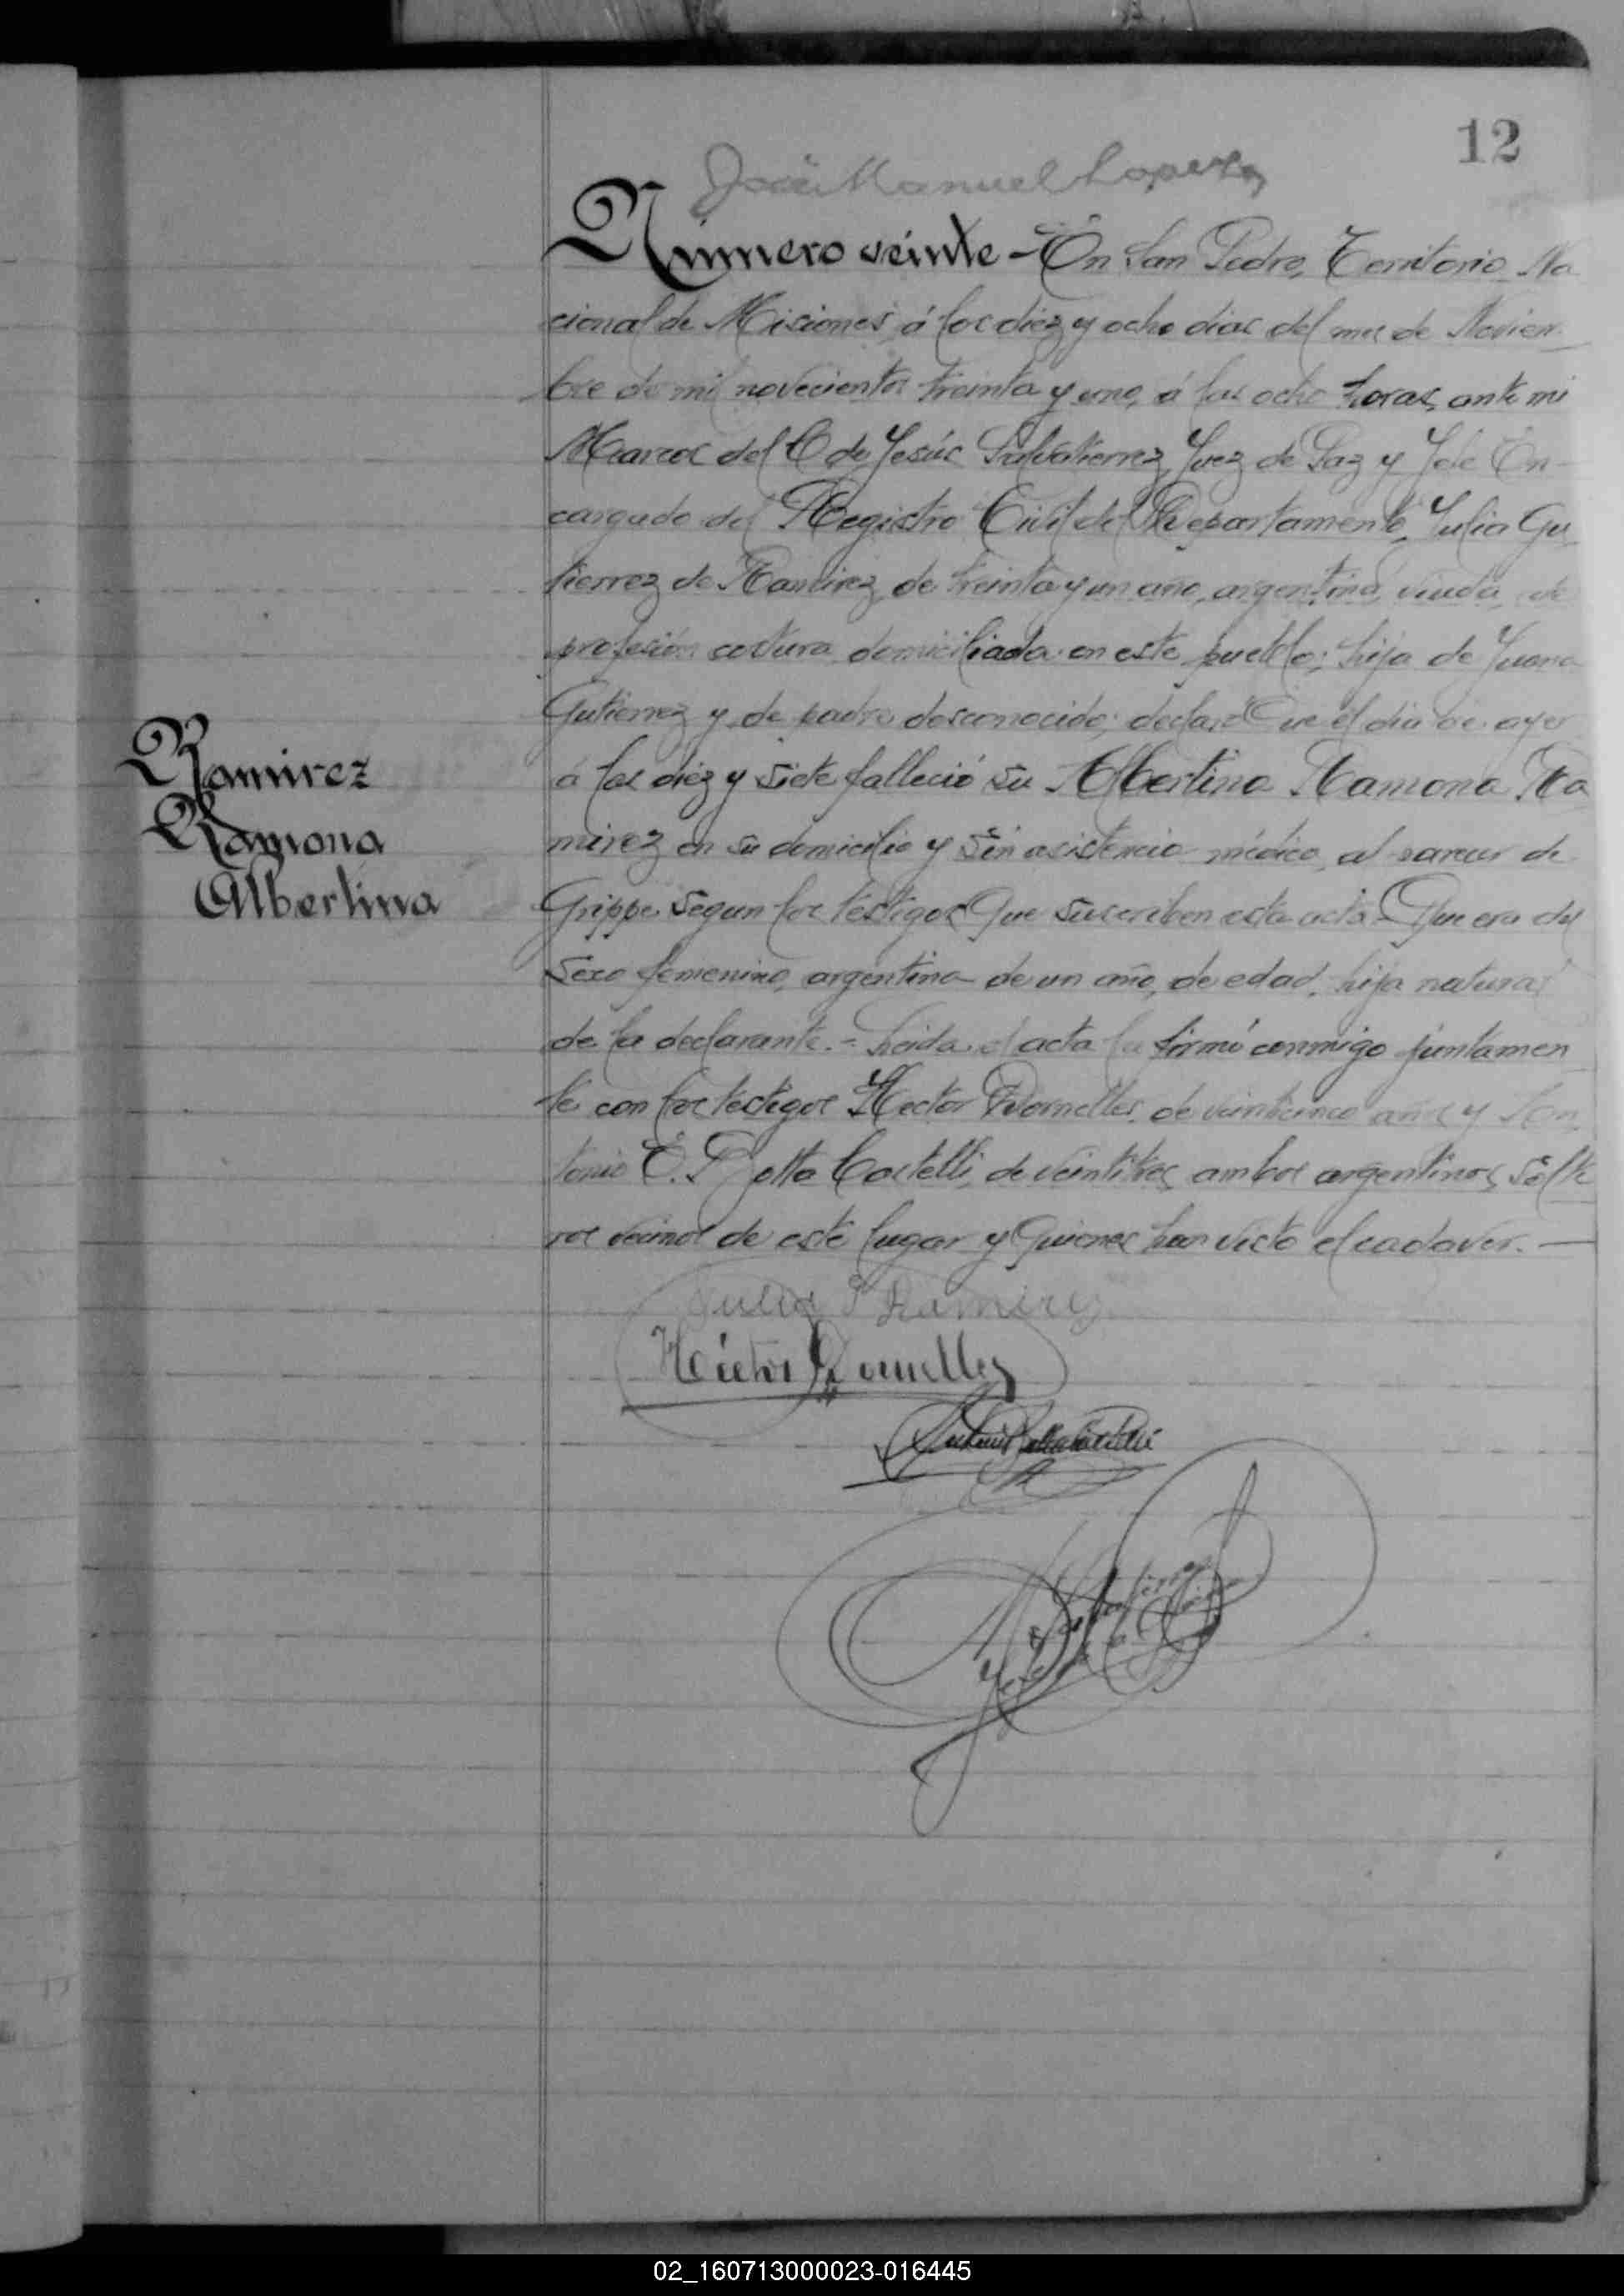 12
José Manuel Lopez
Número veinte - En San Pedro, Territorio Na
cional de Misiones, á los diez y ocho dias del mes de Noviem-
bre de mil novecientos treinta y uno, á las ocho horas, ante mi
Marcos del C de Jesús Salvatierrez, Juez de Paz y Jefe En-
cargado del Registro Civil del Departamento, Julia Gu
tierrez de Ramirez, de treinta y un año, argentina, viuda, de
profesión costura domiciliada en este pueblo; hija de Juana
Gutierrez y de padre desconocido; declaró Que el dia de ayer
á las diez y siete falleció su Albertina Ramona Ra
Ramirez
Ramona
Albertina
mirez en su domicilio y sin asistencia médica, al parecer de
Grippe, segun los testigos Que suscriben esta acta. Que era del
sexo femenino, argentina de un año, de edad, hija natural
de la declarante. - Leida el acta la firmó conmigo juntamen
te con los testigos Hector Dornelles, de veinticinco años y
tonio E. Botta Castelli, de veintitres, ambos argentinos, solte
ros vecinos de este lugar y Quienes han visto el cadaver. —
Julia Ramirez
Héctor Dornelles
02_160713000023-016445